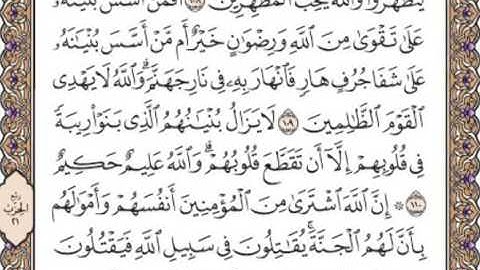 يَتَطَهَّرُوا۟ وَٱللَّهُ يُحِبُّ ٱلْمُطَّهِّرِينَ ١٠٨ أَفَمَنْ أَسَّسَ بُنْيَٰنَهُۥ
عَلَىٰ تَقْوَىٰ مِنَ ٱللَّهِ وَرِضْوَٰنٍ خَيْرٌ أَم مَّنْ أَسَّسَ بُنْيَٰنَهُۥ
عَلَىٰ شَفَا جُرُفٍ هَارٍ فَٱنْهَارَ بِهِۦ فِى نَارِ جَهَنَّمَ ۗ وَٱللَّهُ لَا يَهْدِى
ٱلْقَوْمَ ٱلظَّٰلِمِينَ ١٠٩ لَا يَزَالُ بُنْيَٰنُهُمُ ٱلَّذِى بَنَوْا۟ رِيبَةً
فِى قُلُوبِهِمْ إِلَّآ أَن تَقَطَّعَ قُلُوبُهُمْ ۗ وَٱللَّهُ عَلِيمٌ حَكِيمٌ
١١٠ ۞ إِنَّ ٱللَّهَ ٱشْتَرَىٰ مِنَ ٱلْمُؤْمِنِينَ أَنفُسَهُمْ وَأَمْوَٰلَهُم
بِأَنَّ لَهُمُ ٱلْجَنَّةَ ۚ يُقَٰتِلُونَ فِى سَبِيلِ ٱللَّهِ فَيَقْتُلُونَ
ربع
الحزب
٢١